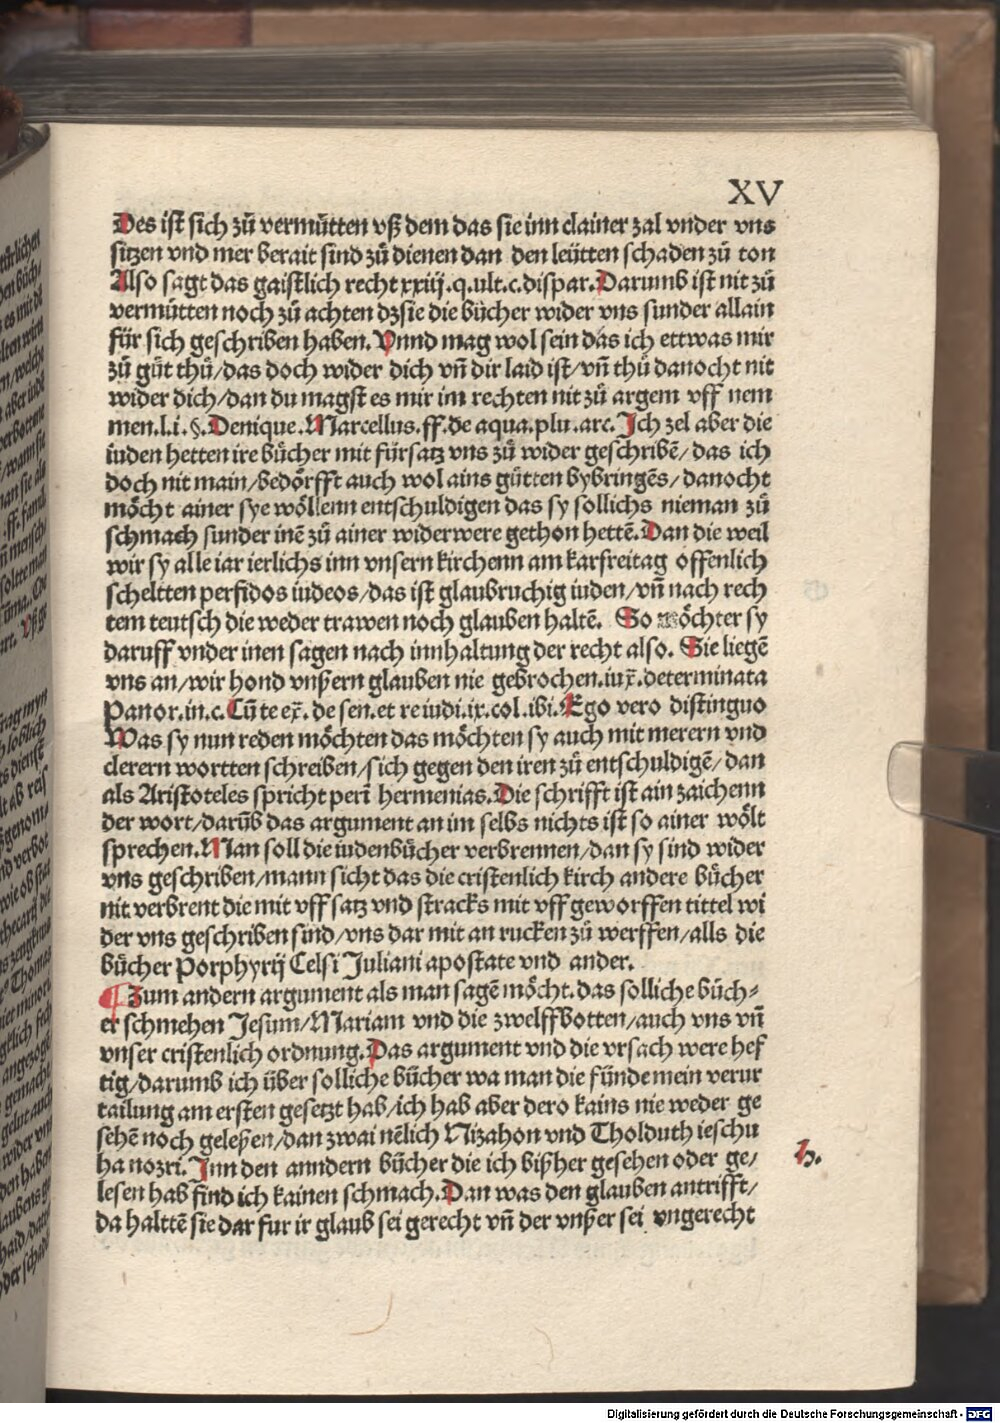 XV
Des ist sich zů vermůtten vß dem das sie inn clainer zal vnder vns
sitzen vnd mer berait sind zů dienen dan den leütten schaden zů ton
Also sagt das gaistlich recht xxiij.q.ult.c.dispar. Darumb ist nit zů
vermůtten noch zů achten dz sie die bůcher wider vns sunder allain
für sich geschriben haben. Vnnd mag wol sein das ich ettwas mir
zů gůt thů/das doch wider dich vñ dir laid ist/vñ thů danocht nit
wider dich/dan du magst es mir im rechten nit zů argem vff nem
men.l.i.§.Denique.Marcellus.ff.de aqua.plu.arc. Ich zel aber die
iuden hetten ire bůcher mit fürsatz vns zů wider geschribẽ/das ich
doch nit main/bedörfft auch wol ains gůtten bybringẽs/danocht
möcht ainer sye wöllenn entschuldigen das sy sollichs nieman zů
schmach sunder inẽ zů ainer widerwere gethon hettẽ. Dan die weil
wir sy alle iar ierlichs inn vnsern kirchenn am karfreitag offenlich
scheltten perfidos iudeos/das ist glaubruchig iuden/vñ nach rech
tem teutsch die weder trawen noch glauben haltẽ. So möchter sy
daruff vnder inen sagen nach innhaltung der recht also. Sie liegẽ
vns an/wir hond vnßern glauben nie gebrochen.iux̃.determinata
Panor.in.c.Cũ te ex̃.de sen.et re iudi.ix.col.ibi. Ego vero distinguo
Was sy nun reden möchten das möchten sy auch mit merern vnd
clerern wortten schreiben/sich gegen den iren zů entschuldigẽ/dan
als Aristoteles spricht peri hermenias. Die schrifft ist ain zaichenn
der wort/darũb das argument an im selbs nichts ist so ainer wölt
sprechen. Man soll die iudenbůcher verbrennen/dan sy sind wider
vns geschriben/mann sicht das die cristenlich kirch andere bůcher
nit verbrent die mit vff satz vnd stracks mit vff geworffen tittel wi
der vns geschriben sind/vns dar mit an rucken zů werffen/alls die
bůcher Porphyrij Celsi Juliani apostate vnd ander.
¶ Zum andern argument als man sagẽ möcht. das solliche bůch⸗
er schmehen Jesum/Mariam vnd die zwelffbotten/auch vns vñ
vnser cristenlich ordnung. Das argument vnd die vrsach were hef
tig/darumb ich über solliche bůcher wa man die fünde mein verur
tailung am ersten gesetzt hab/ich hab aber dero kains nie weder ge
sehẽ noch geleßen/dan zwai nẽlich Nizahon vnd Tholduth ieschu
ha nozri. Inn den anndern bůcher die ich bißher gesehen oder ge/
lesen hab find ich kainen schmach. Dan was den glauben antrifft/
da halttẽ sie dar fur ir glaub sei gerecht vñ der vnßer sei vngerecht
Digitalisierung gefördert durch die Deutsche Forschungsgemeinschaft - DFG